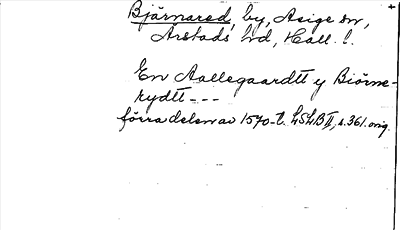 Bjärnared, by, Asige sn,
Årstads hd, Hall. l.
En Aallegaardtt y Biörne-
rydtt---
förra delen av 1570-t. LSLB II, s. 361. orig.